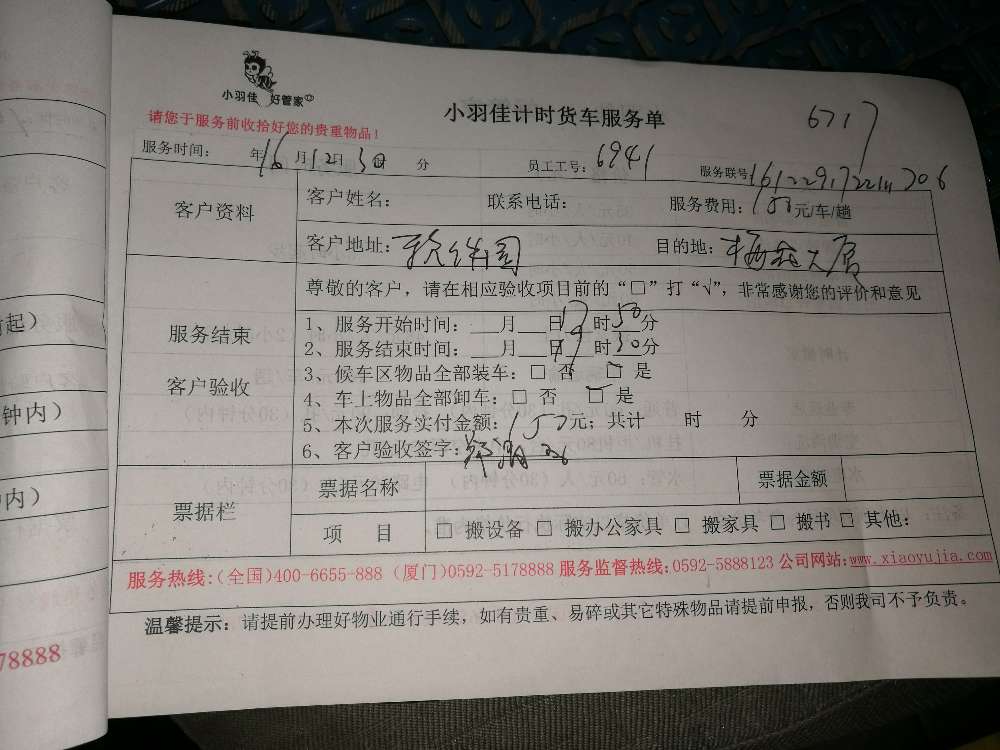 小羽佳 好管家
小羽佳计时货车服务单
6717
请您于服务前收拾好您的贵重物品！
服务时间： 年16月12日30 分 员工工号：6941 服务联号
客户资料 客户姓名： 联系电话： 服务费用：150元/车/趟
客户地址：软件园 目的地：
尊敬的客户，请在相应验收项目前的“□”打“√”，非常感谢您的评价和意见
服务结束
客户验收
1、服务开始时间：___月___日17时50分
2、服务结束时间：___月___日19时30分
3、候车区物品全部装车：□ 否 □ 是
4、车上物品全部卸车：□ 否 □ 是
5、本次服务实付金额：150元；共计 时 分
6、客户验收签字：
票据栏 票据名称 票据金额
项 目 □ 搬设备 □ 搬办公家具 □ 搬家具 □ 搬书 □ 其他：
服务热线：(全国)400-6655-888 (厦门)0592-5178888 服务监督热线：0592-5888123 公司网站：www.xiaoyujia.com
温馨提示：请提前办理好物业通行手续，如有贵重、易碎或其它特殊物品请提前申报，否则我司不予负责。
起）
钟内）
内）
78888